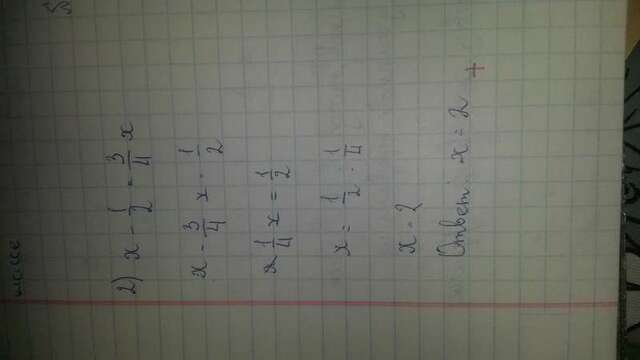 2) x - 1/2 = 3/4 x
x - 3/4 x = 1/2
1/4 x = 1/2
x = 1/2 : 1/4
x = 2
Ответ: x = 2 +